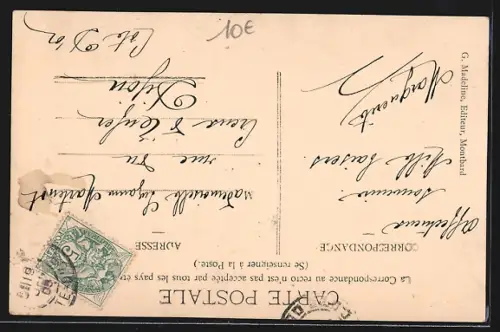 10€
CARTE POSTALE
La Correspondance au recto n'est pas acceptée par tous les pays
(Se renseigner à la Poste.)
CORRESPONDANCE
Affectueux
souvenir
Mille baisers
Marguerite
ADRESSE
Mademoiselle Suzanne Martenot
rue du
Creux d'Enfer
Dijon
Côte d'Or
G. Madeline, Editeur, Montbard
5